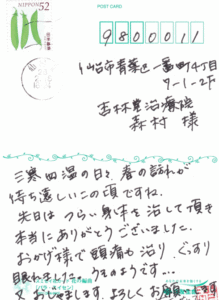 POST CARD
NIPPON 52
9800011
仙台市青葉区一番町4丁目
7-1-2F
吉林堂治療院
森村 様
三寒四温の日々、春の訪れが
待ち遠しいこの頃ですね。
先日は つらい身体を治して頂き
本当にありがとうございました。
おかげ様で 頭痛も治り、ぐっすり
眠れました。うそのようです…
又 おじゃまします。よろしくお願いします